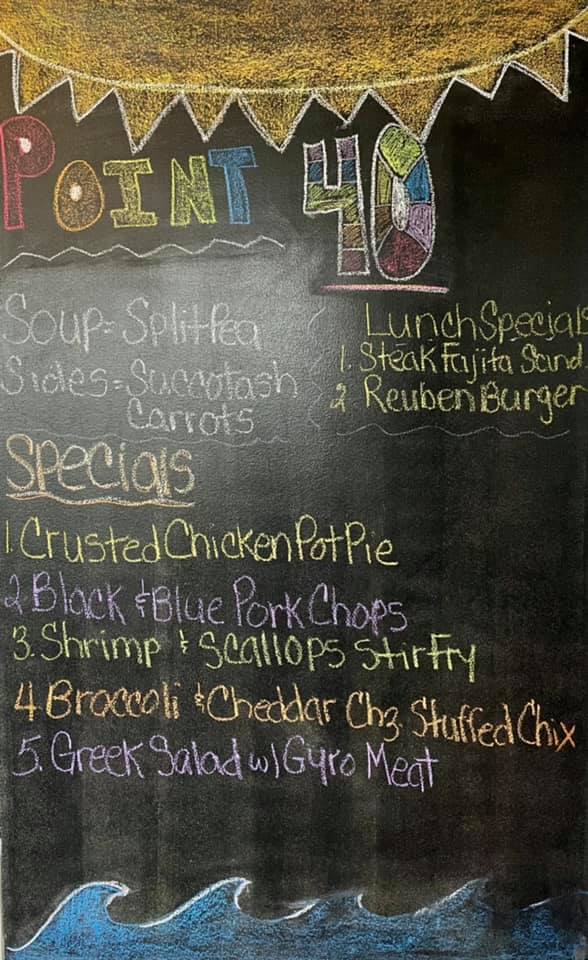 Point 40
Soup = Split Pea
Sides = Succotash
Carrots
Lunch Specials
1. Steak Fajita Sand.
2 Reuben Burger
Specials
1. Crusted Chicken Pot Pie
2 Black & Blue Pork Chops
3. Shrimp & Scallops Stir Fry
4 Broccoli & Cheddar Chz. Stuffed Chix
5. Greek Salad w/ Gyro Meat